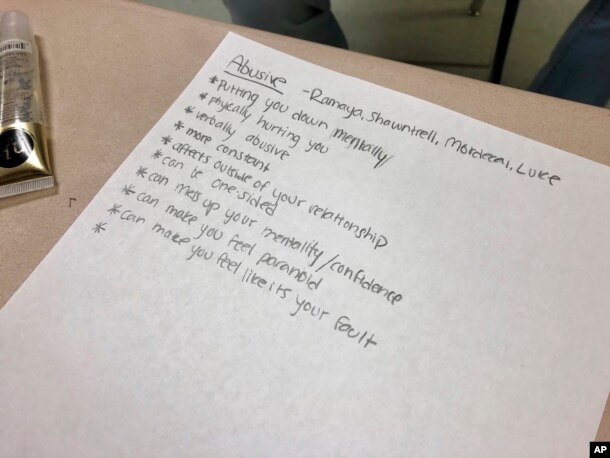 Abusive - Ramaya, Shawntrell, Mordecai, Luke
* Putting you down mentally/
* phycally hurting you
* verbally abusive
* more constant
* affects outside of your relationship
* can be one-sided
* can mess up your mentality/confidence
* can make you feel paranoid
* can make you feel like its your fault
*
AP